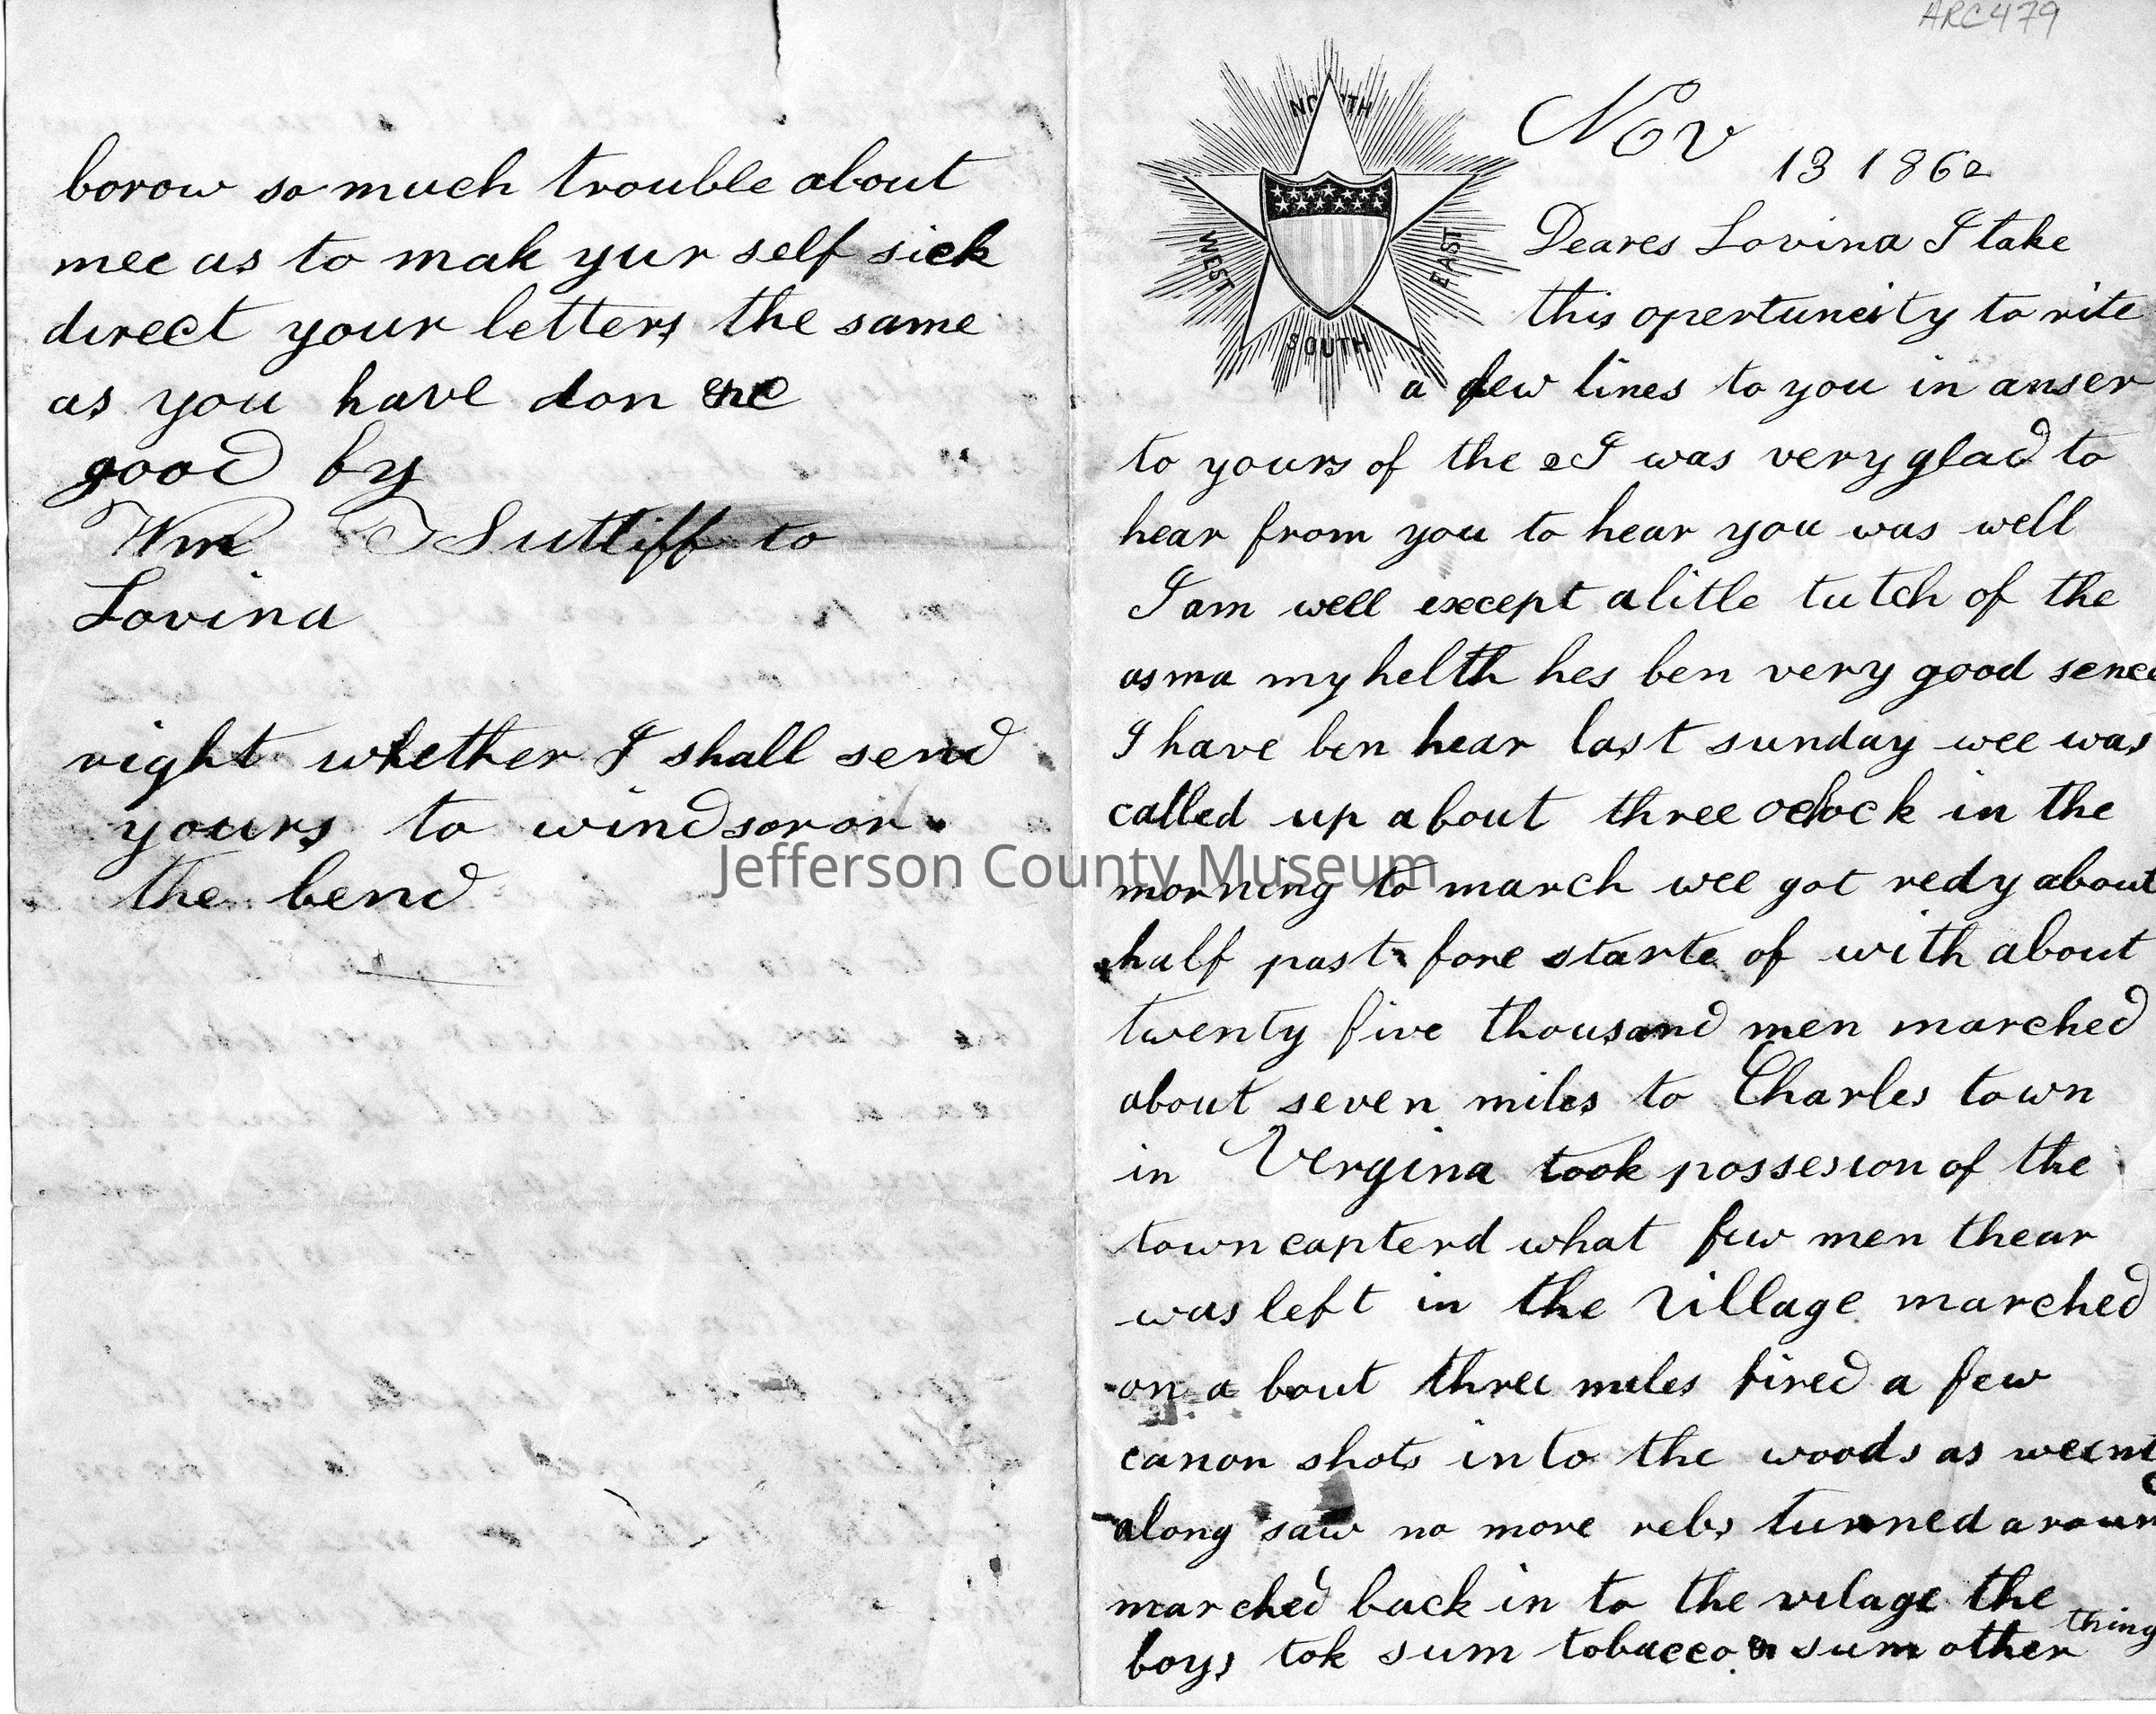 ARC479
NORTH
WEST
EAST
SOUTH
Nov 13 1862
Deares Lovina I take
this opertuneity to rite
a few lines to you in anser
to yours of the 2 I was very glad to
hear from you to hear you was well
I am well except a litle tutch of the
asma my helth hes ben very good senee
I have ben hear last sunday wee was
called up about three oclock in the
morning to march wee got redy about
half past fore starte of with about
twenty five thousand men marched
about seven miles to Charles town
in Vergina took possesion of the
town capterd what few men thear
was left in the village marched
on a bout three miles fired a few
canon shots into the woods as weent
along saw no more rebs turned aroun
marched back in to the vilage the
boys tok sum tobacco & sum other thing
borow so much trouble about
mee as to mak yur self sick
direct your letters the same
as you have don &c
good by
Wm T Sutliff to
Lovina
right whether I shall send
yours to windsor or
the bend
Jefferson County Museum